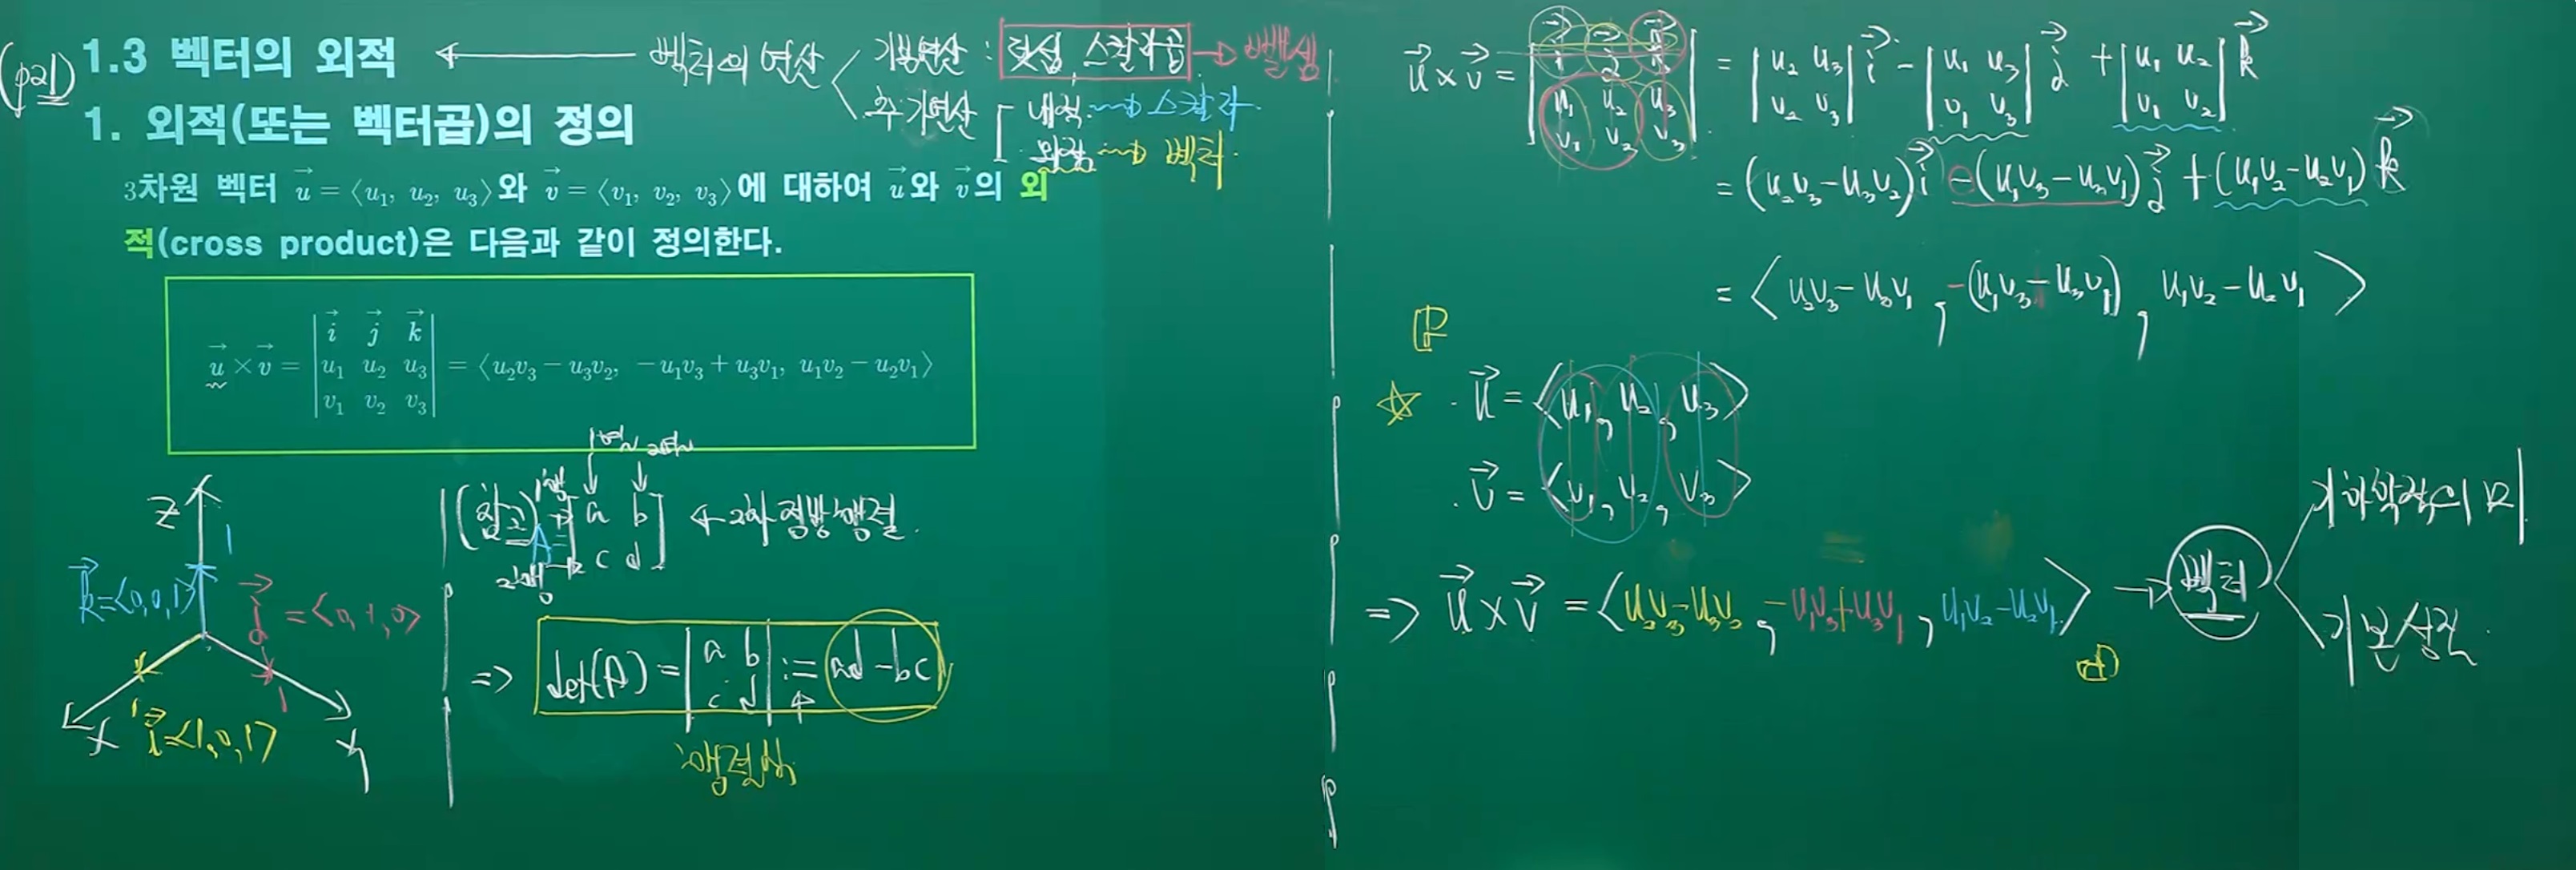 (p21) 1.3 벡터의 외적 ← 벡터의 연산
기본연산 : 덧셈 스칼라곱 → 뺄셈
추가연산
내적 → 스칼라
외적 → 벡터
1. 외적(또는 벡터곱)의 정의
3차원 벡터 u = ⟨u₁, u₂, u₃⟩와 v = ⟨v₁, v₂, v₃⟩에 대하여 u와 v의 외
적(cross product)은 다음과 같이 정의한다.
u × v = | i j k |
| u₁ u₂ u₃ |
| v₁ v₂ v₃ | = ⟨u₂v₃ − u₃v₂, −u₁v₃ + u₃v₁, u₁v₂ − u₂v₁⟩
z
1
k = ⟨0, 0, 1⟩
j = ⟨0, 1, 0⟩
1
y
1
x
i = ⟨1, 0, 1⟩
(참고)
1열 2열
1행 → [a b] ← 2차 정방행렬.
A =
2행 → [c d]
⇒ det(A) = |a b| := ad − bc
|c d|
행렬식
u × v = | i j k |
| u₁ u₂ u₃ |
| v₁ v₂ v₃ |
= |u₂ u₃| i − |u₁ u₃| j + |u₁ u₂| k
|v₂ v₃| |v₁ v₃| |v₁ v₂|
= (u₂v₃ − u₃v₂) i − (u₁v₃ − u₃v₁) j + (u₁v₂ − u₂v₁) k
= ⟨u₂v₃ − u₃v₁, −(u₁v₃ − u₃v₁), u₁v₂ − u₂v₁⟩
☆ · u = ⟨u₁, u₂, u₃⟩
· v = ⟨v₁, v₂, v₃⟩
⇒ u × v = ⟨u₂v₃ − u₃v₂, −u₁v₃ + u₃v₁, u₁v₂ − u₂v₁⟩ → 벡터
기하학적의미
기본성질.